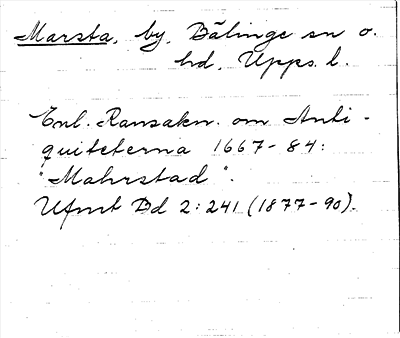 Marsta, by, Bälinge sn o.
hd, Upps. l.
Enl. Ransakn. om Anti-
quiteterna 1667-84:
"Mahrstad".
Ufmt Dd 2:241 (1877-90).